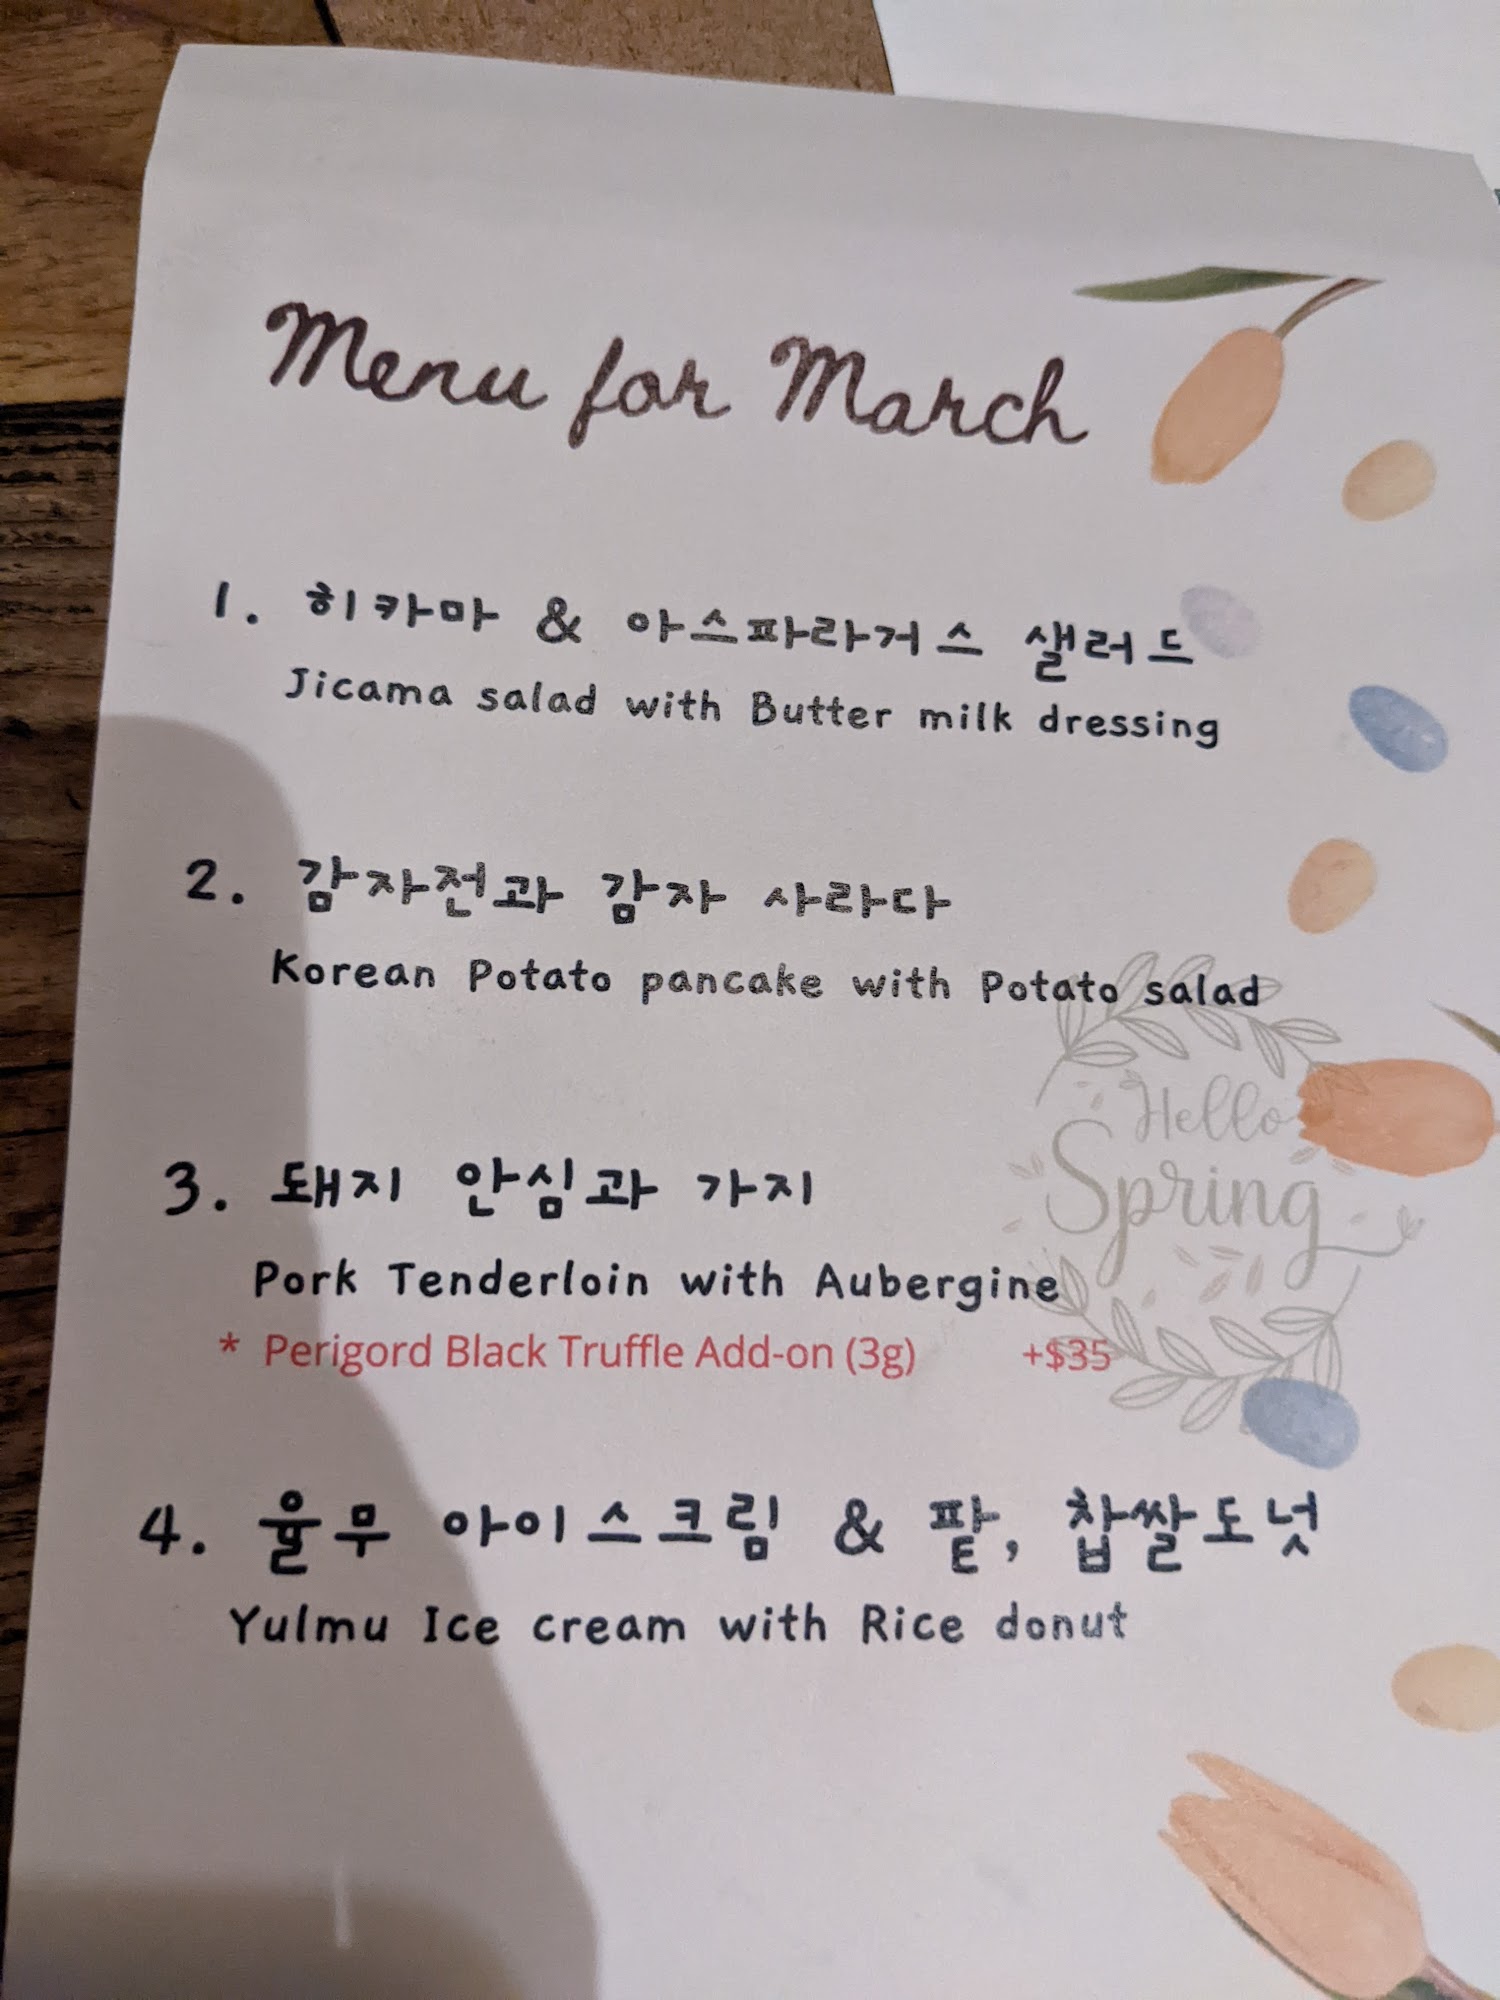 Menu for March
1. 히카마 & 아스파라거스 샐러드
Jicama salad with Butter milk dressing
2. 감자전과 감자 사라다
Korean Potato pancake with Potato salad
Hello
Spring
3. 돼지 안심과 가지
Pork Tenderloin with Aubergine
* Perigord Black Truffle Add-on (3g) +$35
4. 율무 아이스크림 & 팥, 찹쌀도넛
Yulmu Ice cream with Rice donut